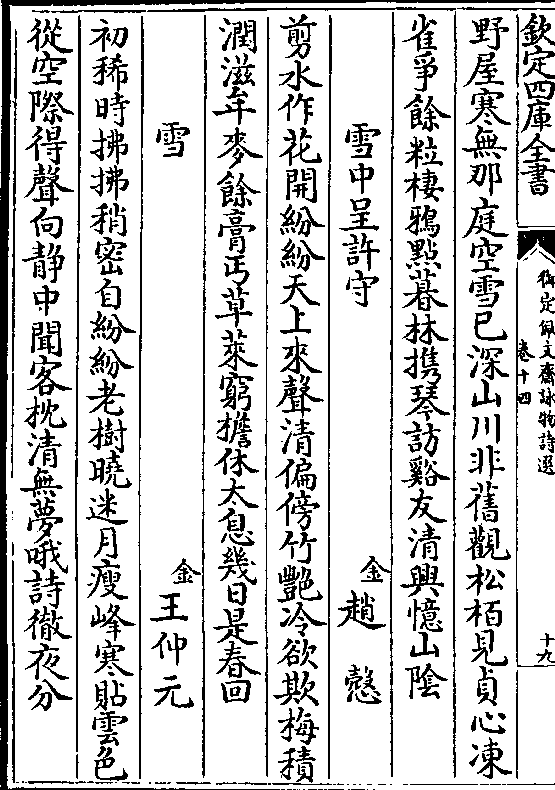 欽定四庫全書
御定佩文齋詠物詩選
卷十四
十九
野屋寒無那庭空雪已深山川非舊觀松栢見貞心凍
雀爭餘粒棲鴉點暮林携琴訪谿友清興憶山陰
雪中呈許守
金趙慤
剪水作花開紛紛天上來聲清偏傍竹艷冷欲欺梅積
潤滋牟麥餘膏丐草萊窮擔休太息幾日是春回
雪
金王仲元
初稀時拂拂稍密自紛紛老樹曉迷月瘦峰寒貼雲色
從空際得聲向静中聞客枕清無夢哦詩徹夜分